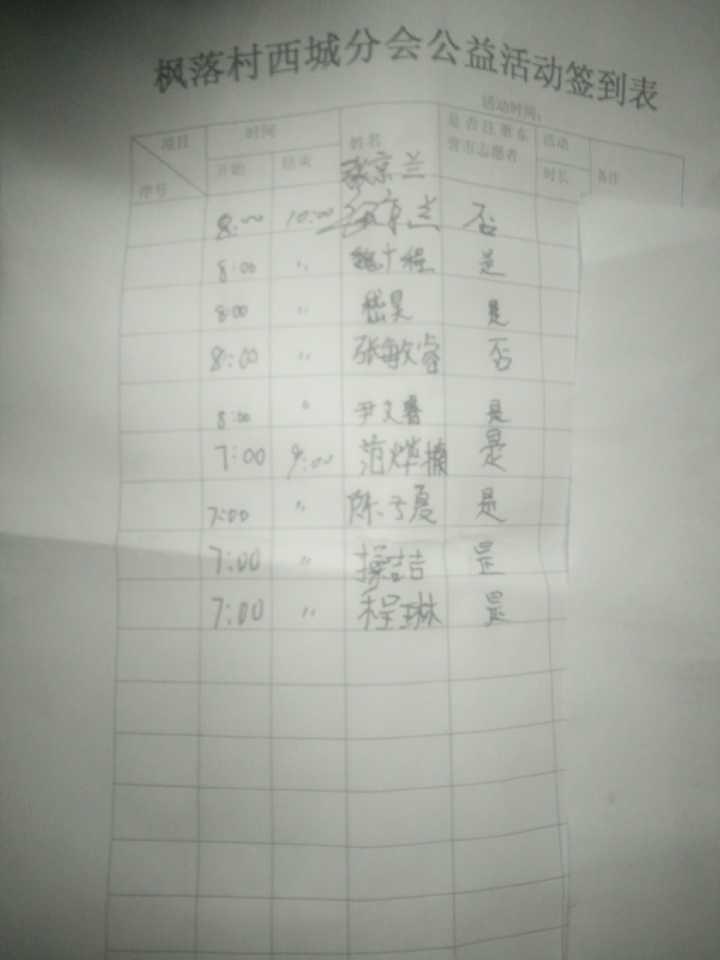 枫落村西城分会公益活动签到表
活动时间:
项目 时间 姓名 是否注册东营市志愿者 活动时长 备注
序号 开始 结束
张京兰
8:00 10:00 张京兰 否
8:00 〃 魏 程 是
8:00 〃 嵇昊 是
8:00 〃 张敏睿 否
8:00 〃 尹文睿 是
7:00 9:00 范烨楠 是
7:00 〃 陈 夏 是
7:00 〃 喆 是
7:00 〃 程琳 是